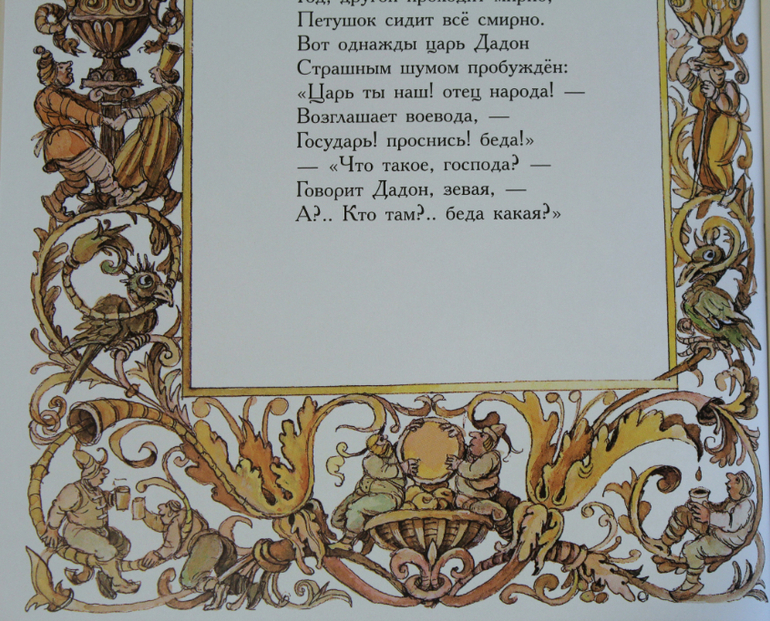 Год, другой проходит мирно;
Петушок сидит всё смирно.
Вот однажды царь Дадон
Страшным шумом пробуждён:
«Царь ты наш! отец народа! —
Возглашает воевода, —
Государь! проснись! беда!»
— «Что такое, господа? —
Говорит Дадон, зевая, —
А?.. Кто там?.. беда какая?»